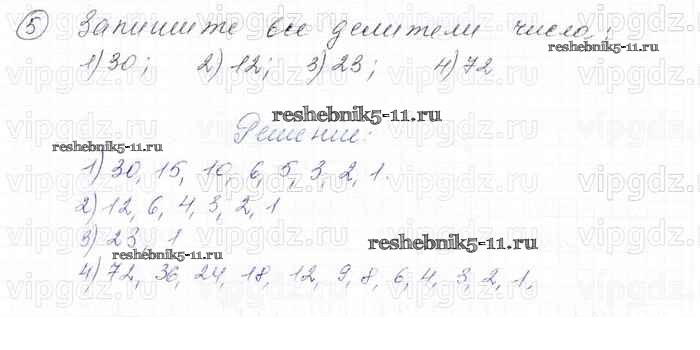 5 Запишите все делители числа:
reshebnik5-11.ru
1) 30; 2) 12; 3) 23; 4) 72
reshebnik5-11.ru
Решение:
reshebnik5-11.ru
1) 30, 15, 10, 6, 5, 3, 2, 1.
2) 12, 6, 4, 3, 2, 1
3) 23, 1
reshebnik5-11.ru
reshebnik5-11.ru
4) 72, 36, 24, 18, 12, 9, 8, 6, 4, 3, 2, 1,
vipgdz.ru vipgdz.ru vipgdz.ru vipgdz.ru